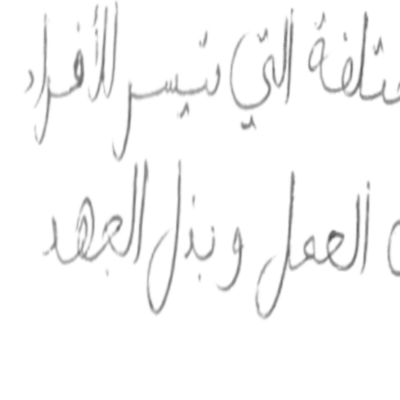 مختلفة التي تيسر للأفراد
العمل وبذل الجهد